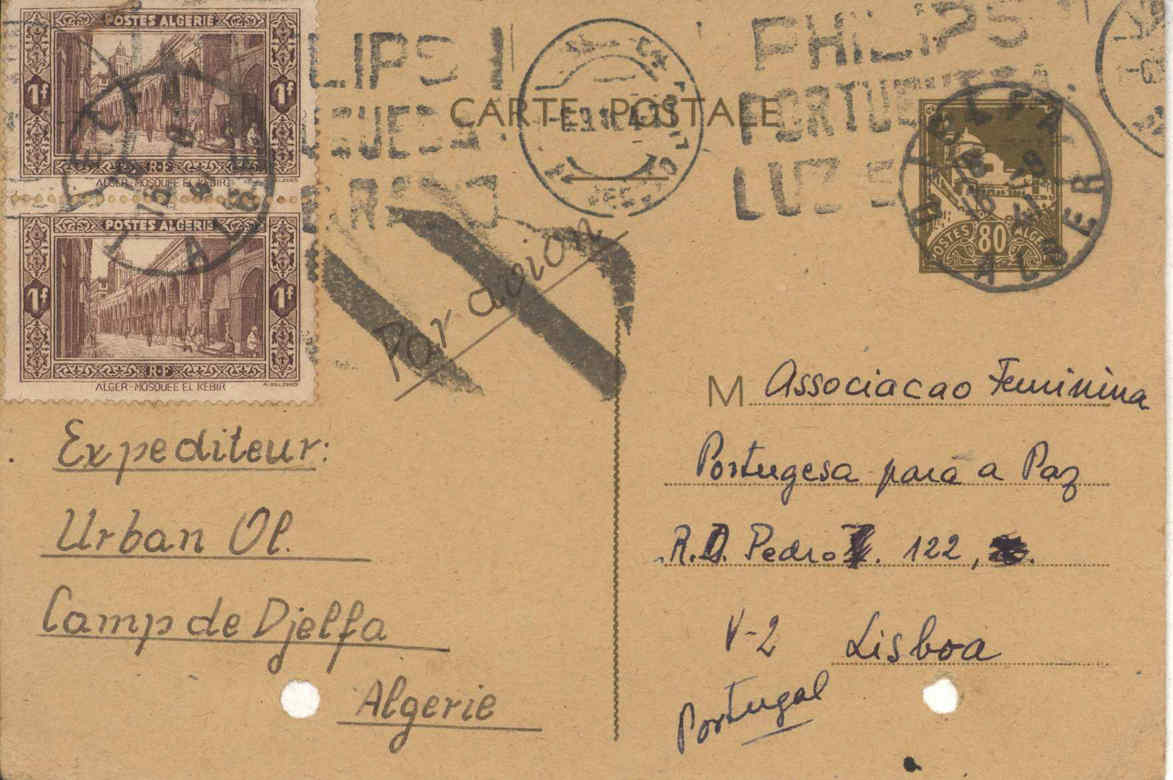 POSTES ALGERIE
1f 1f
RF
ALGER-MOSQUEE EL KEBIR
POSTES ALGERIE
1f 1f
RF
ALGER-MOSQUEE EL KEBIR
PHILIPS
PORTUGUESA
CARTE POSTALE
DJELFA
ALGER
POSTES ALGERIE
80
DJELFA
ALGER
Par avion
Expediteur:
Urban Ol.
Camp de Djelfa
Algerie
M Associacao Feminina
Portugesa para a Paz
R.D. Pedro V. 122,
V-2 Lisboa
Portugal